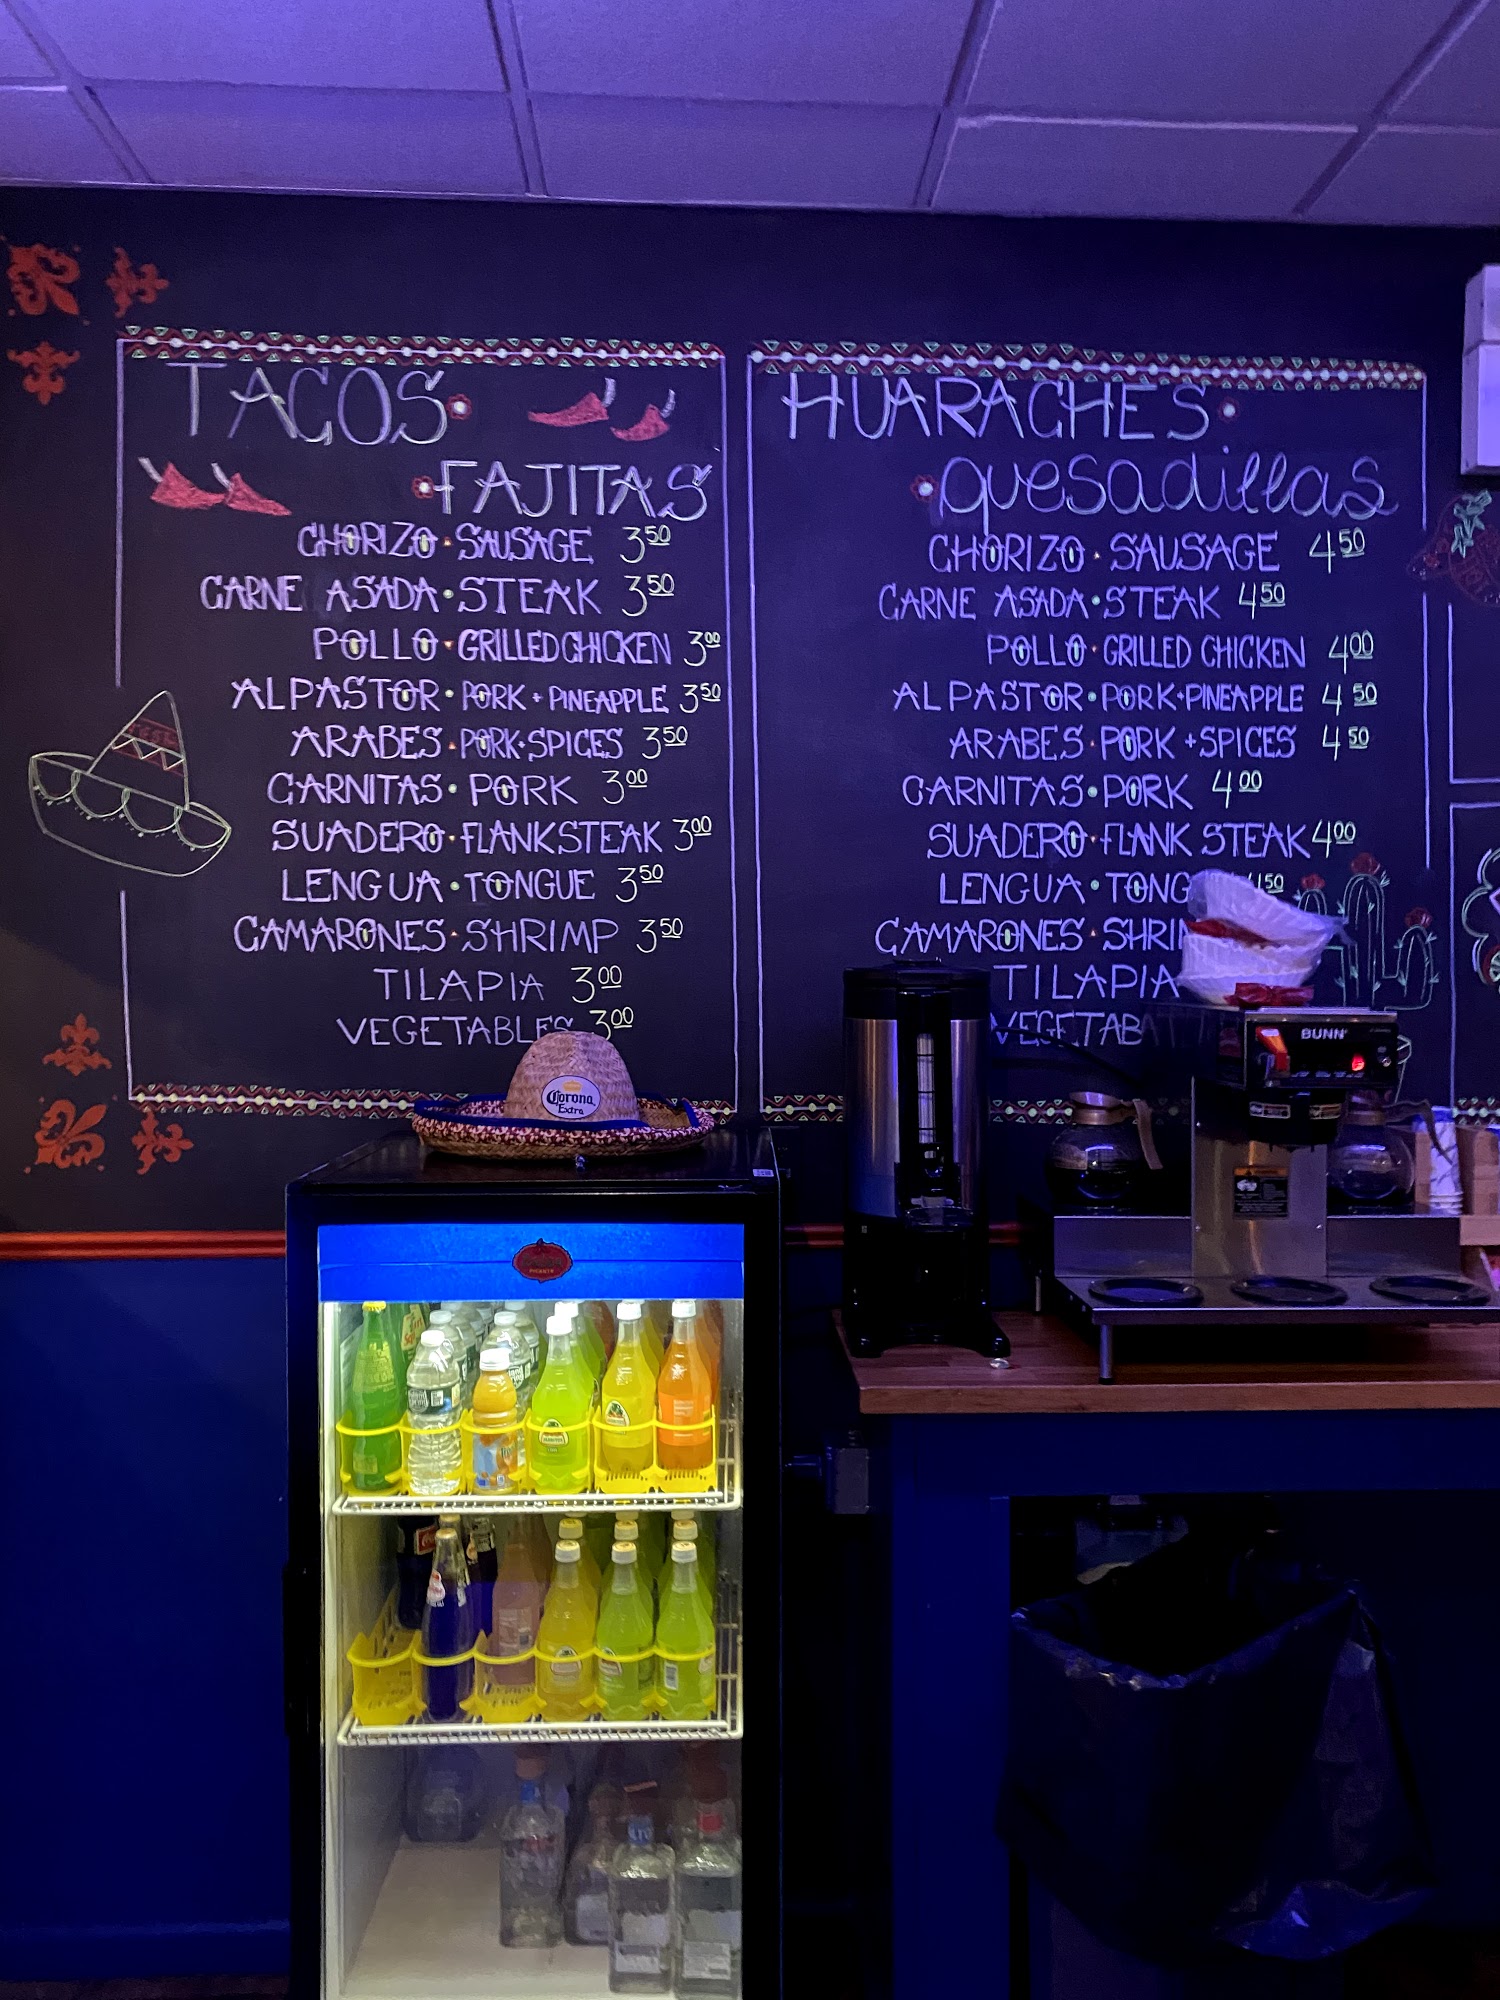 TACOS
FAJITAS
CHORIZO · SAUSAGE 3 50
CARNE ASADA · STEAK 3 50
POLLO · GRILLED CHICKEN 3 00
AL PASTOR · PORK + PINEAPPLE 3 50
ARABES · PORK + SPICES 3 50
CARNITAS · PORK 3 00
SUADERO · FLANK STEAK 3 00
LENGUA · TONGUE 3 50
CAMARONES · SHRIMP 3 50
TILAPIA 3 00
VEGETABLES 3 00
HUARACHES
quesadillas
CHORIZO · SAUSAGE 4 50
CARNE ASADA · STEAK 4 50
POLLO · GRILLED CHICKEN 4 00
AL PASTOR · PORK + PINEAPPLE 4 50
ARABES · PORK + SPICES 4 50
CARNITAS · PORK 4 00
SUADERO · FLANK STEAK 4 00
LENGUA · TONG 4 50
CAMARONES · SHRI
TILAPIA
VEGETAB
Corona
Extra
BUNN